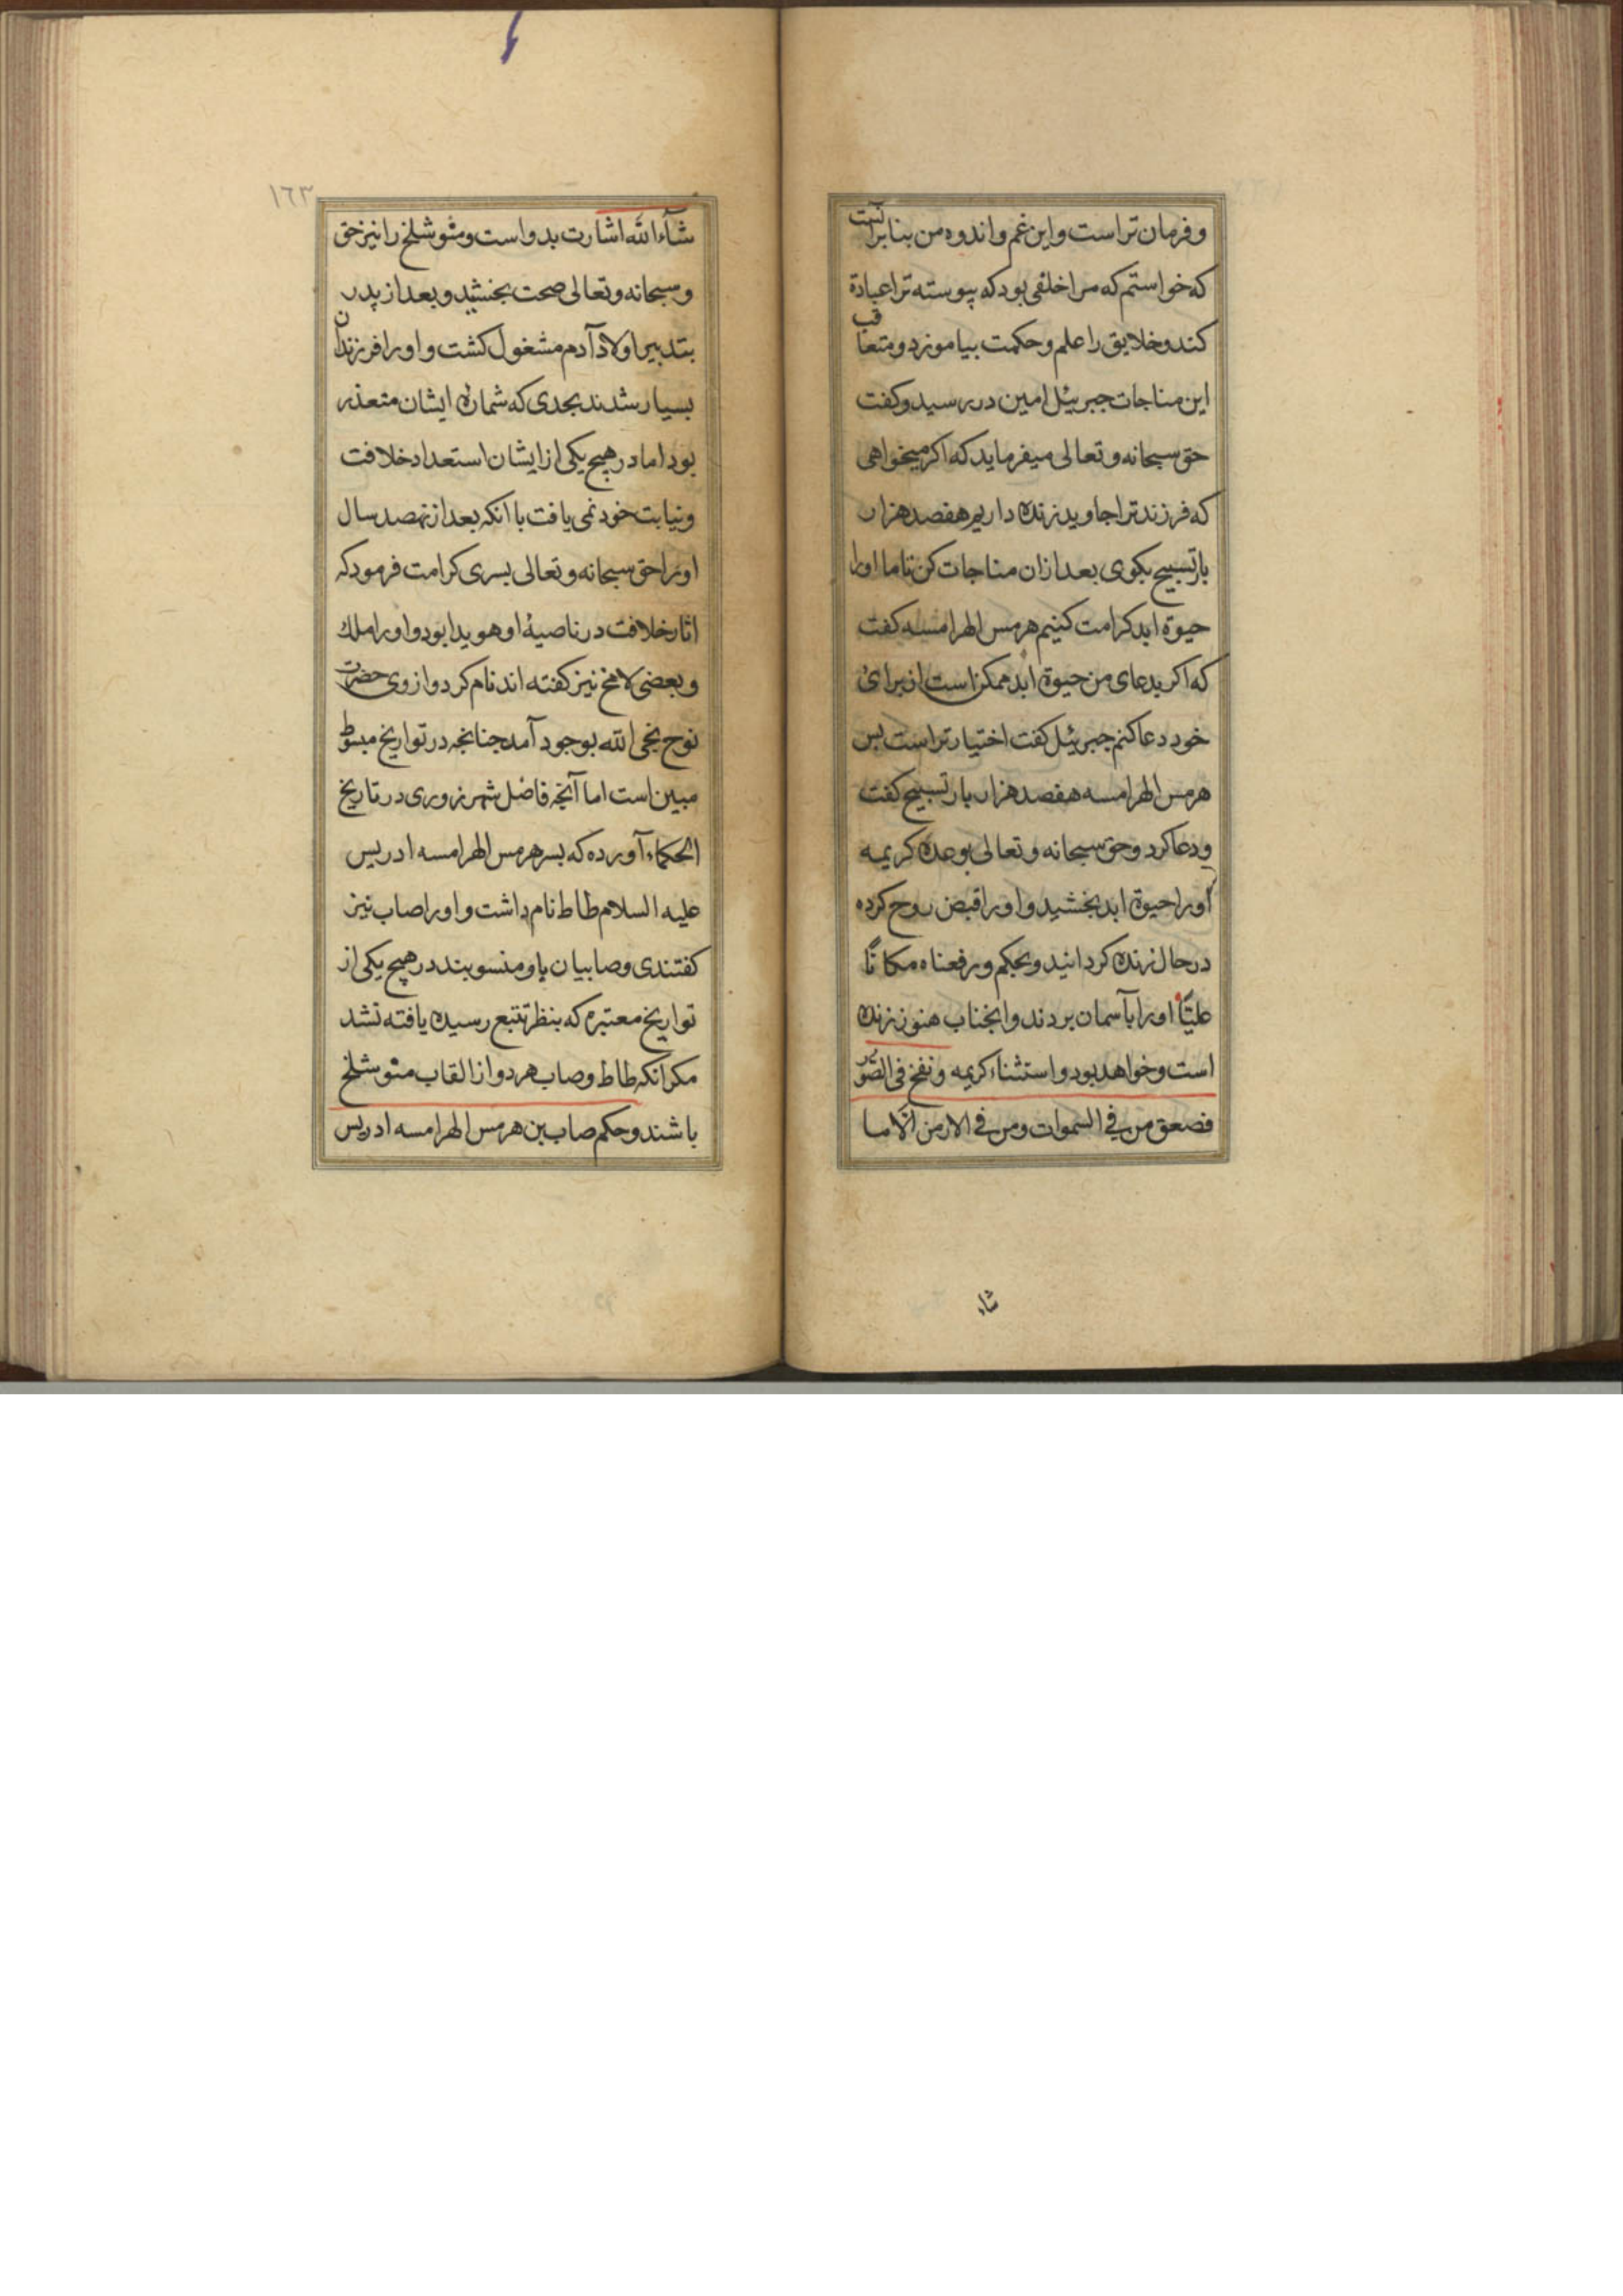 و فرمان تراست و این غم و اندوه من بنا برآنست
که خواستم که مرا خلفی بود که پیوسته ترا عبادة
کند و خلایق را علم و حکمت بیاموزد و متعاقب
این مناجات جبرئیل امین در رسید و کفت
حق سبحانه و تعالی میفرماید که اکر میخواهی
که فرزند ترا جاوید زنده داریم هفصد هزار
بار تسبیح بکوی بعد ازان مناجات کن تا ما اورا
حیوة ابد کرامت کنیم هرمس الهرامسه کفت
که اکر بدعای من حیوة ابد ممکن است از برای
خود دعا کنم جبرئیل کفت اختیار تراست بس
هرمس الهرامسه هفصد هزار بار تسبیح کفت
و دعا کرد و حق سبحانه و تعالی بوعده کریمه
اورا حیوة ابد بخشید و اورا قبض روح کرده
در حال زنده کردانید و بحکم و رفعناه مکانًا
علیًّا اورا بآسمان بردند و انجناب هنوز زنده
است و خواهد بود و استثناء کریمه و نفخ فی الصور
فصعق من فی السموات و من فی الارض الّا ما
شاء
١٦٣
شآء الله اشارت بدو است و متوشلخ را نیز حق
و سبحانه و تعالی صحت بخشید و بعد از پدر
بتدبیر اولاد آدم مشغول کشت و اورا فرزندان
بسیار شدند بحدی که شماره ایشان متعذر
بود اما در هیچ یکی از ایشان استعداد خلافت
و نیابت خود نمی یافت با انکه بعد از نهصد سال
اورا حق سبحانه و تعالی بسری کرامت فرمود که
اثار خلافت در ناصیهٔ او هویدا بود و اورا ملک
و بعضی لامخ نیز کفته اند نام کرد و از وی حضرت
نوح نجی الله بوجود آمد جنانجه در تواریخ مبسوط
مبین است اما آنچه فاضل شهرزوری در تاریخ
الحکماء آورده که بسر هرمس الهرامسه ادریس
علیه السلام طاط نام داشت و اورا صاب نیز
کفتندی و صابیان باو منسوبند در هیچ یکی از
تواریخ معتبره که بنظر تتبع رسیده یافته نشد
مکر انکه طاط و صاب هر دو از القاب متوشلخ
باشند و حکم صاب بن هرمس الهرامسه ادریس